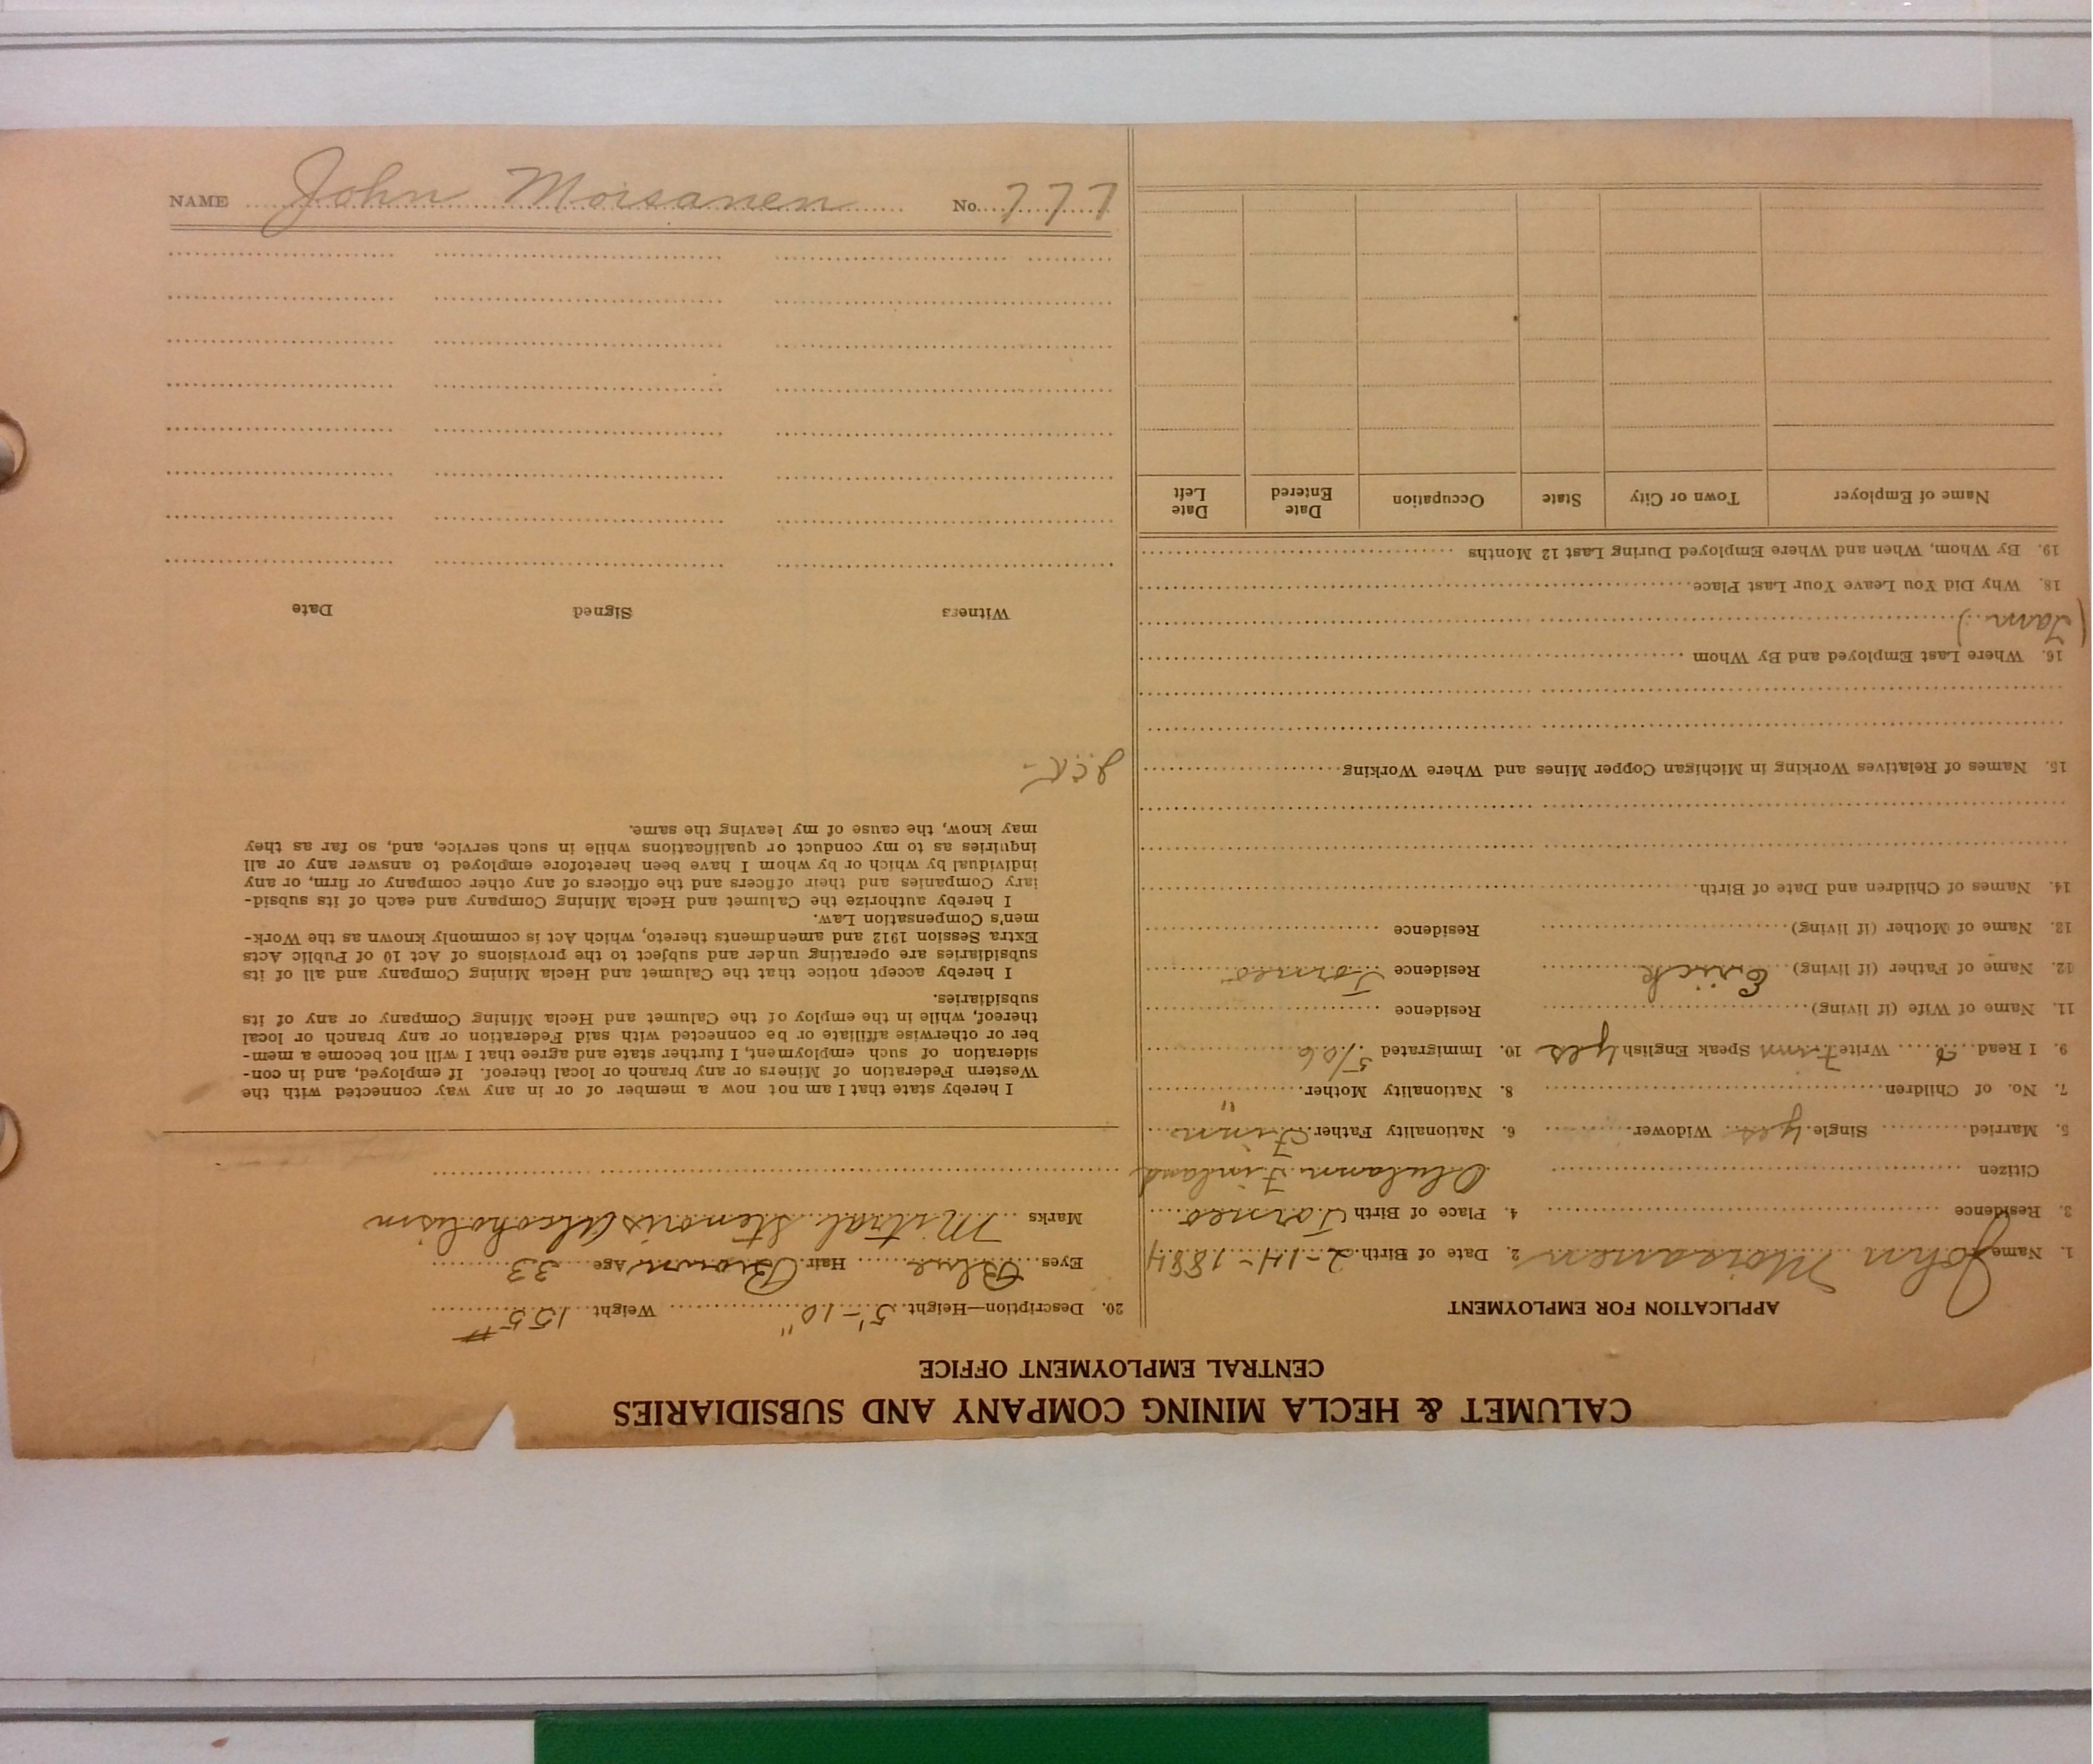 NAME John Moisanen No. 777
CALUMET & HECLA MINING COMPANY AND SUBSIDIARIES
CENTRAL EMPLOYMENT OFFICE
APPLICATION FOR EMPLOYMENT
1. Name John Moisanen 2. Date of Birth 2-14-1884
3. Residence 4. Place of Birth Torneo
Citizen Finland
5. Married Single yes Widower 6. Nationality Father Finn
7. No. of Children 8. Nationality Mother "
9. I Read Write Finn Speak English yes 10. Immigrated 5/06
11. Name of Wife (if living) Residence
12. Name of Father (if living) Erick Residence Torneo
13. Name of Mother (if living) Residence
14. Names of Children and Date of Birth
15. Names of Relatives Working in Michigan Copper Mines and Where Working
16. Where Last Employed and By Whom
18. Why Did You Leave Your Last Place
19. By Whom, When and Where Employed During Last 12 Months
Name of Employer Town or City State Occupation Date Entered Date Left
20. Description—Height 5'-10" Weight 155#
Eyes Blue Hair Brown Age 33
Marks Mitral Stenoris (Alcoholism
I hereby state that I am not now a member of or in any way connected with the
Western Federation of Miners or any branch or local thereof. If employed, and in con-
sideration of such employment, I further state and agree that I will not become a mem-
ber or otherwise affiliate or be connected with said Federation or any branch or local
thereof, while in the employ of the Calumet and Hecla Mining Company or any of its
subsidiaries.
I hereby accept notice that the Calumet and Hecla Mining Company and all of its
subsidiaries are operating under and subject to the provisions of Act 10 of Public Acts
Extra Session 1912 and amendments thereto, which Act is commonly known as the Work-
men's Compensation Law.
I hereby authorize the Calumet and Hecla Mining Company and each of its subsid-
iary Companies and their officers and the officers of any other company or firm, or any
individual by which or by whom I have been heretofore employed to answer any or all
inquiries as to my conduct or qualifications while in such service, and, so far as they
may know, the cause of my leaving the same.
Witness Signed Date